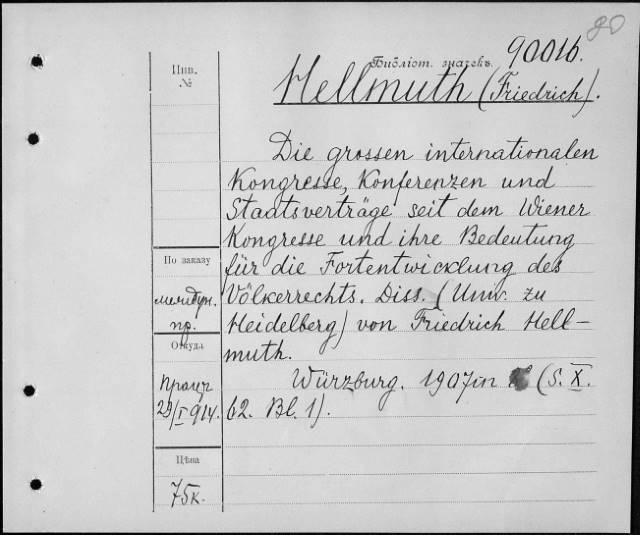 20
Библіот. значекъ. 90016.
Инв.
№
Hellmuth (Friedrich).
Die grossen internationalen
Kongresse, Konferenzen und
Staatsverträge seit dem Wiener
Kongresse und ihre Bedeutung
für die Fortentwicklung des
Völkerrechts. Diss. (Univ. zu
Heidelberg) von Friedrich Hell-
muth.
Würzburg. 1907 in (S. X.
62. Bl. 1).
По заказу
междун.
пр.
Откуда
29/I 914.
Цѣна
75к.